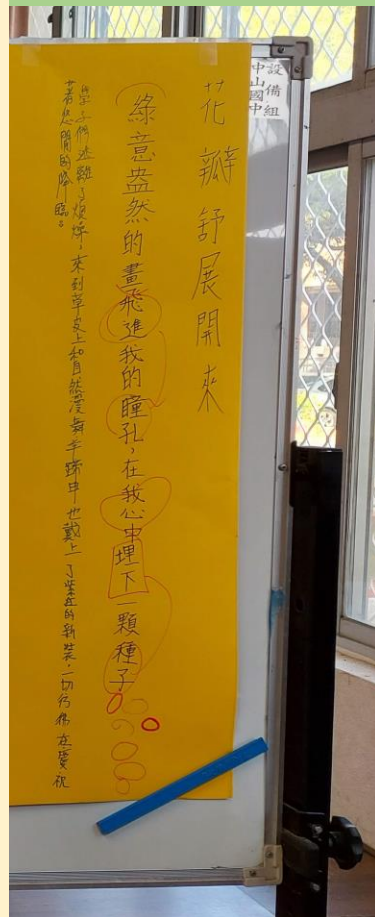 設備組
中山國中
花瓣舒展開來
綠意盎然的畫飛進我的瞳孔,在我心中埋下一顆種子
學子們逃離了煩憂,來到草皮上和自然漫舞羊蹄甲也戴上了紫紅的新裝,一切彷彿在慶祝
著悠閒的降臨。